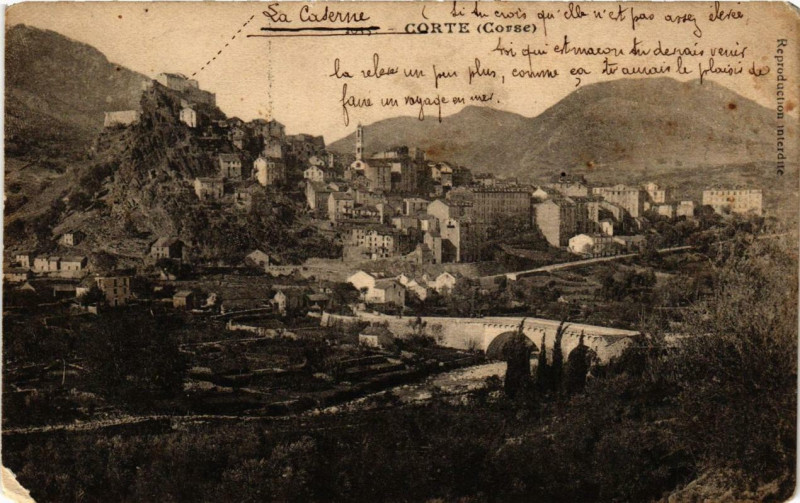 La Caserne
( Si tu crois qu'elle n'est pas assez élevée
CORTE (Corse)
toi qui est maçon tu devrais venir
la relever un peu plus, comme ça tu aurais le plaisir de
faire un voyage en mer.
Reproduction interdite